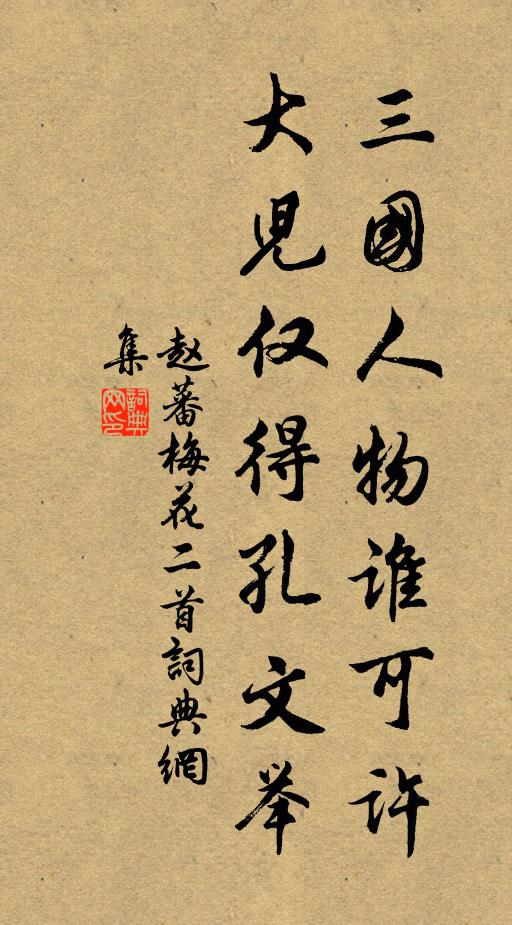 三國人物谁可许
大児仅得孔文举
赵蕃梅花二首詞典網
集
詞典
网印